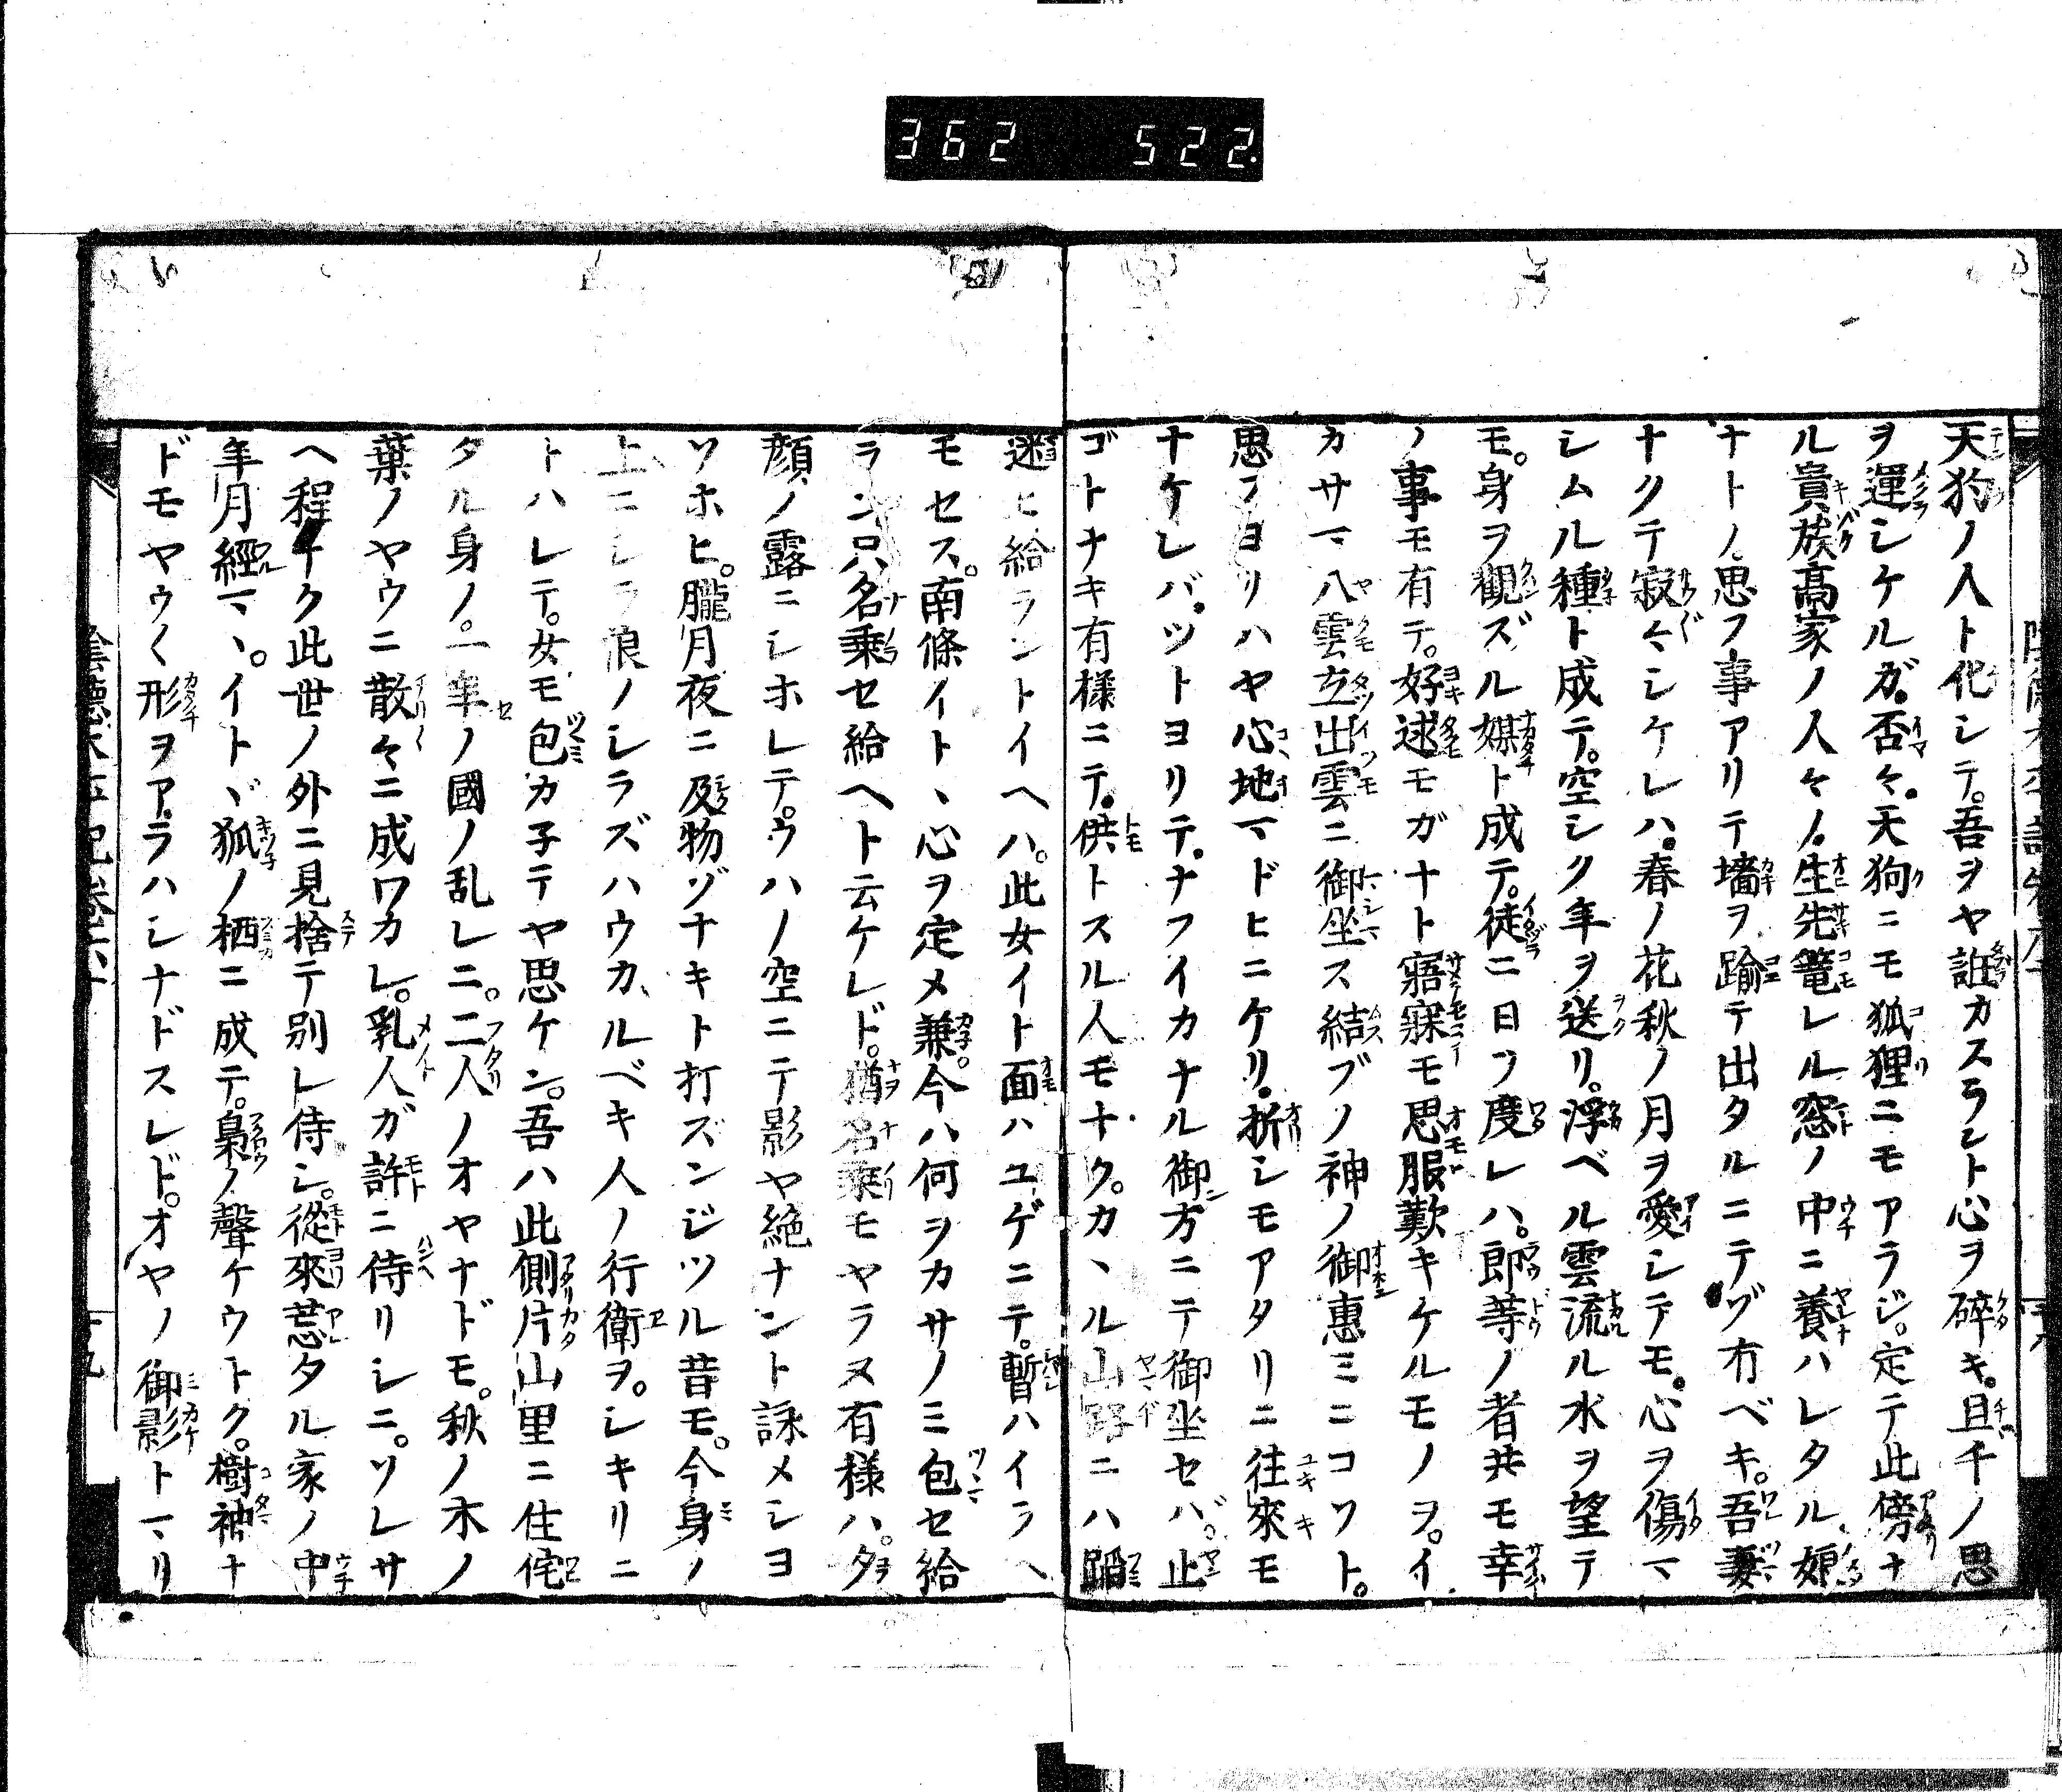 362 522
天狗ノ人ト化シテ。吾ヲヤ誑カスラント心ヲ碎キ。且千ノ思
ヲ運シケルガ。否々。天狗ニモ狐狸ニモアラジ。定テ此傍ナ
ル貴族髙家ノ人々ノ。生先篭レル窓ノ中ニ養ハレタル娘
ナトノ。思フ事アリテ墻ヲ踰テ出タルニテゾ有ベキ。吾妻
ナクテ寂々シケレハ。春ノ花秋ノ月ヲ愛シテモ。心ヲ傷マ
シムル種ト成テ。空シク年ヲ送リ。浮ベル雲流ル水ヲ望テ
モ。身ヲ觀ズル媒ト成テ。徒ニ日ヲ度レハ。郎等ノ者共モ幸
ノ事モ有テ。好逑モガナト寤寐モ思服歎キケルモノヲ。イ
カサマ八雲立出雲ニ御坐ス結ブノ神ノ御惠ミニコソト。
思フヨリハヤ心地マドヒニケリ。折シモアタリニ往來モ
ナケレバ。ツトヨリテ。ナフイカナル御方ニテ御坐セバ。止
ゴトナキ有様ニテ。供トスル人モナク。カヽル山路ニハ蹈
迷ヒ給ラントイヘハ。此女イト面ハユゲニテ。暫ハイラヘ
モセス。南條イトヽ心ヲ定メ兼。今ハ何ヲカサノミ包セ給
ラン只名乗セ給ヘト云ケレド。猶名乗モヤラヌ有様ハ。夕
顔ノ露ニシホレテ。ウハノ空ニテ影ヤ絶ナント詠メシヨ
ソホヒ。朧月夜ニ及物ゾナキト打ズンジツル昔モ。今身ノ
上ニシラ浪ノシラズハウカルベキ人ノ行衛ヲ。シキリニ
トハレテ。女モ包カ子テヤ思ケン。吾ハ此側片山里ニ住侘
タル身ノ。一年ノ國ノ乱レニ。二人ノオヤナドモ。秋ノ木ノ
葉ノヤウニ散々ニ成ワカレ。乳人ガ許ニ侍リシニ。ソレサ
ヘ程ナク此世ノ外ニ見捨テ別レ侍シ。從來荒タル家ノ中
年月經マヽ。イトヾ狐ノ栖ニ成テ。梟ノ聲ケウトク。樹神ナ
ドモヤウ〱形ヲアラハシナドスレド。オヤノ御影トマリ